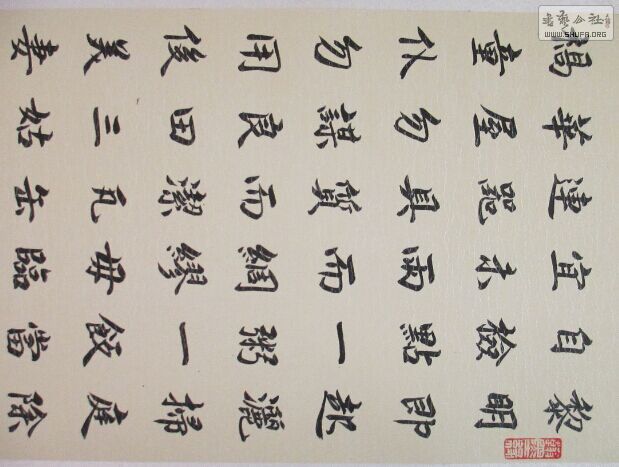 黎明即起灑掃庭除
自檢點一粥一飯當
宜未雨而綢繆毋臨
連器具質而潔瓦缶
華屋勿謀良田三姑
福童仆勿用俊美妻
書藝公社
WWW.SHUFA.ORG